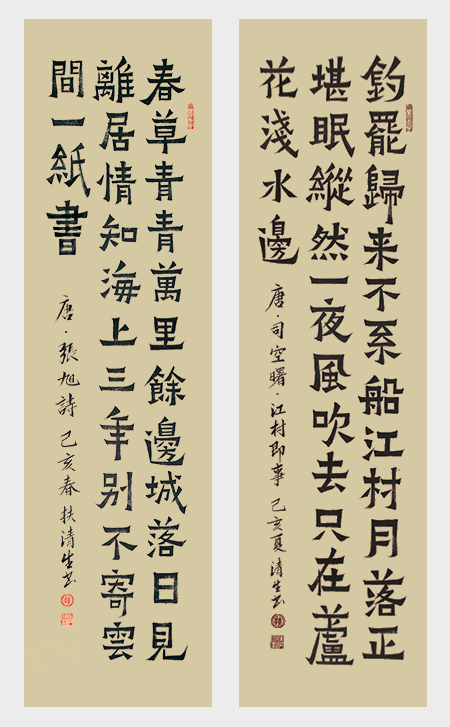 釣罷歸来不系船江村月落正
堪眠縱然一夜風吹去只在蘆
花淺水邊
唐·司空曙·江村即事 己亥夏清生书
春草青青萬里餘邊城落日見
離居情知海上三年别不寄雲
間一紙書
唐·張旭詩 己亥春扶清生书